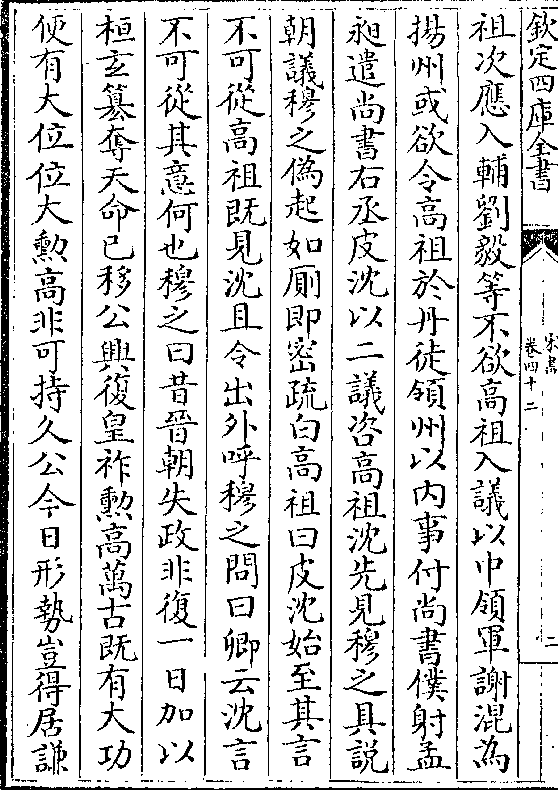 欽定四庫全書
宋書
卷四十二
二
祖次應入輔劉毅等不欲高祖入議以中領軍謝混為
揚州或欲令高祖於丹徒領州以内事付尚書僕射孟
昶遣尚書右丞皮沈以二議咨高祖沈先見穆之具説
朝議穆之偽起如厠即密疏白高祖曰皮沈始至其言
不可從高祖既見沈且令出外呼穆之問曰卿云沈言
不可從其意何也穆之曰昔晉朝失政非復一日加以
桓玄篡奪天命已移公興復皇祚勲高萬古既有大功
便有大位位大勲高非可持久公今日形勢豈得居謙